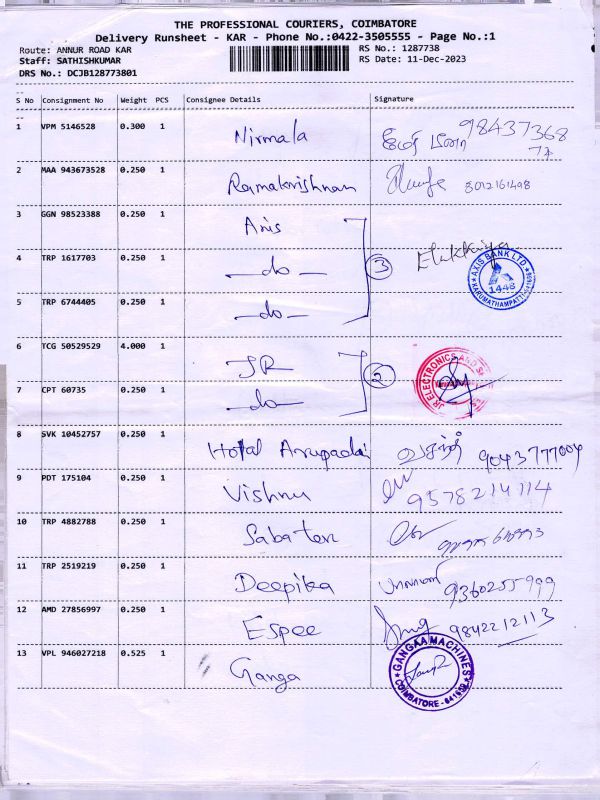 THE PROFESSIONAL COURIERS, COIMBATORE
Delivery Runsheet - KAR - Phone No.:0422-3505555 - Page No.:1
Route: ANNUR ROAD KAR RS No.: 1287738
Staff: SATHISHKUMAR RS Date: 11-Dec-2023
DRS No.: DCJB128773801
S No Consignment No Weight PCS Consignee Details Signature
1 VPM 5146528 0.300 1 Nirmala 98437368
2 MAA 943673528 0.250 1 Ramakrishnan 8012161498
3 GGN 98523388 0.250 1 Axis
4 TRP 1617703 0.250 1 —do— 3 Elakkiya AXIS BANK LTD 1448
5 TRP 6744405 0.250 1 —do—
6 TCG 50529529 4.000 1 JR JR ELECTRONICS AND
7 CPT 60735 0.250 1 —do— 2
8 SVK 10452757 0.250 1 Hotal Arupadai வசந்த் 9043777004
9 PDT 175104 0.250 1 Vishnu 9578214114
10 TRP 4882788 0.250 1 Sabaten
11 TRP 2519219 0.250 1 Deepika 9360255999
12 AMD 27856997 0.250 1 Espee 9842212113
13 VPL 946027218 0.525 1 Ganga GANGAA MACHINES COIMBATORE